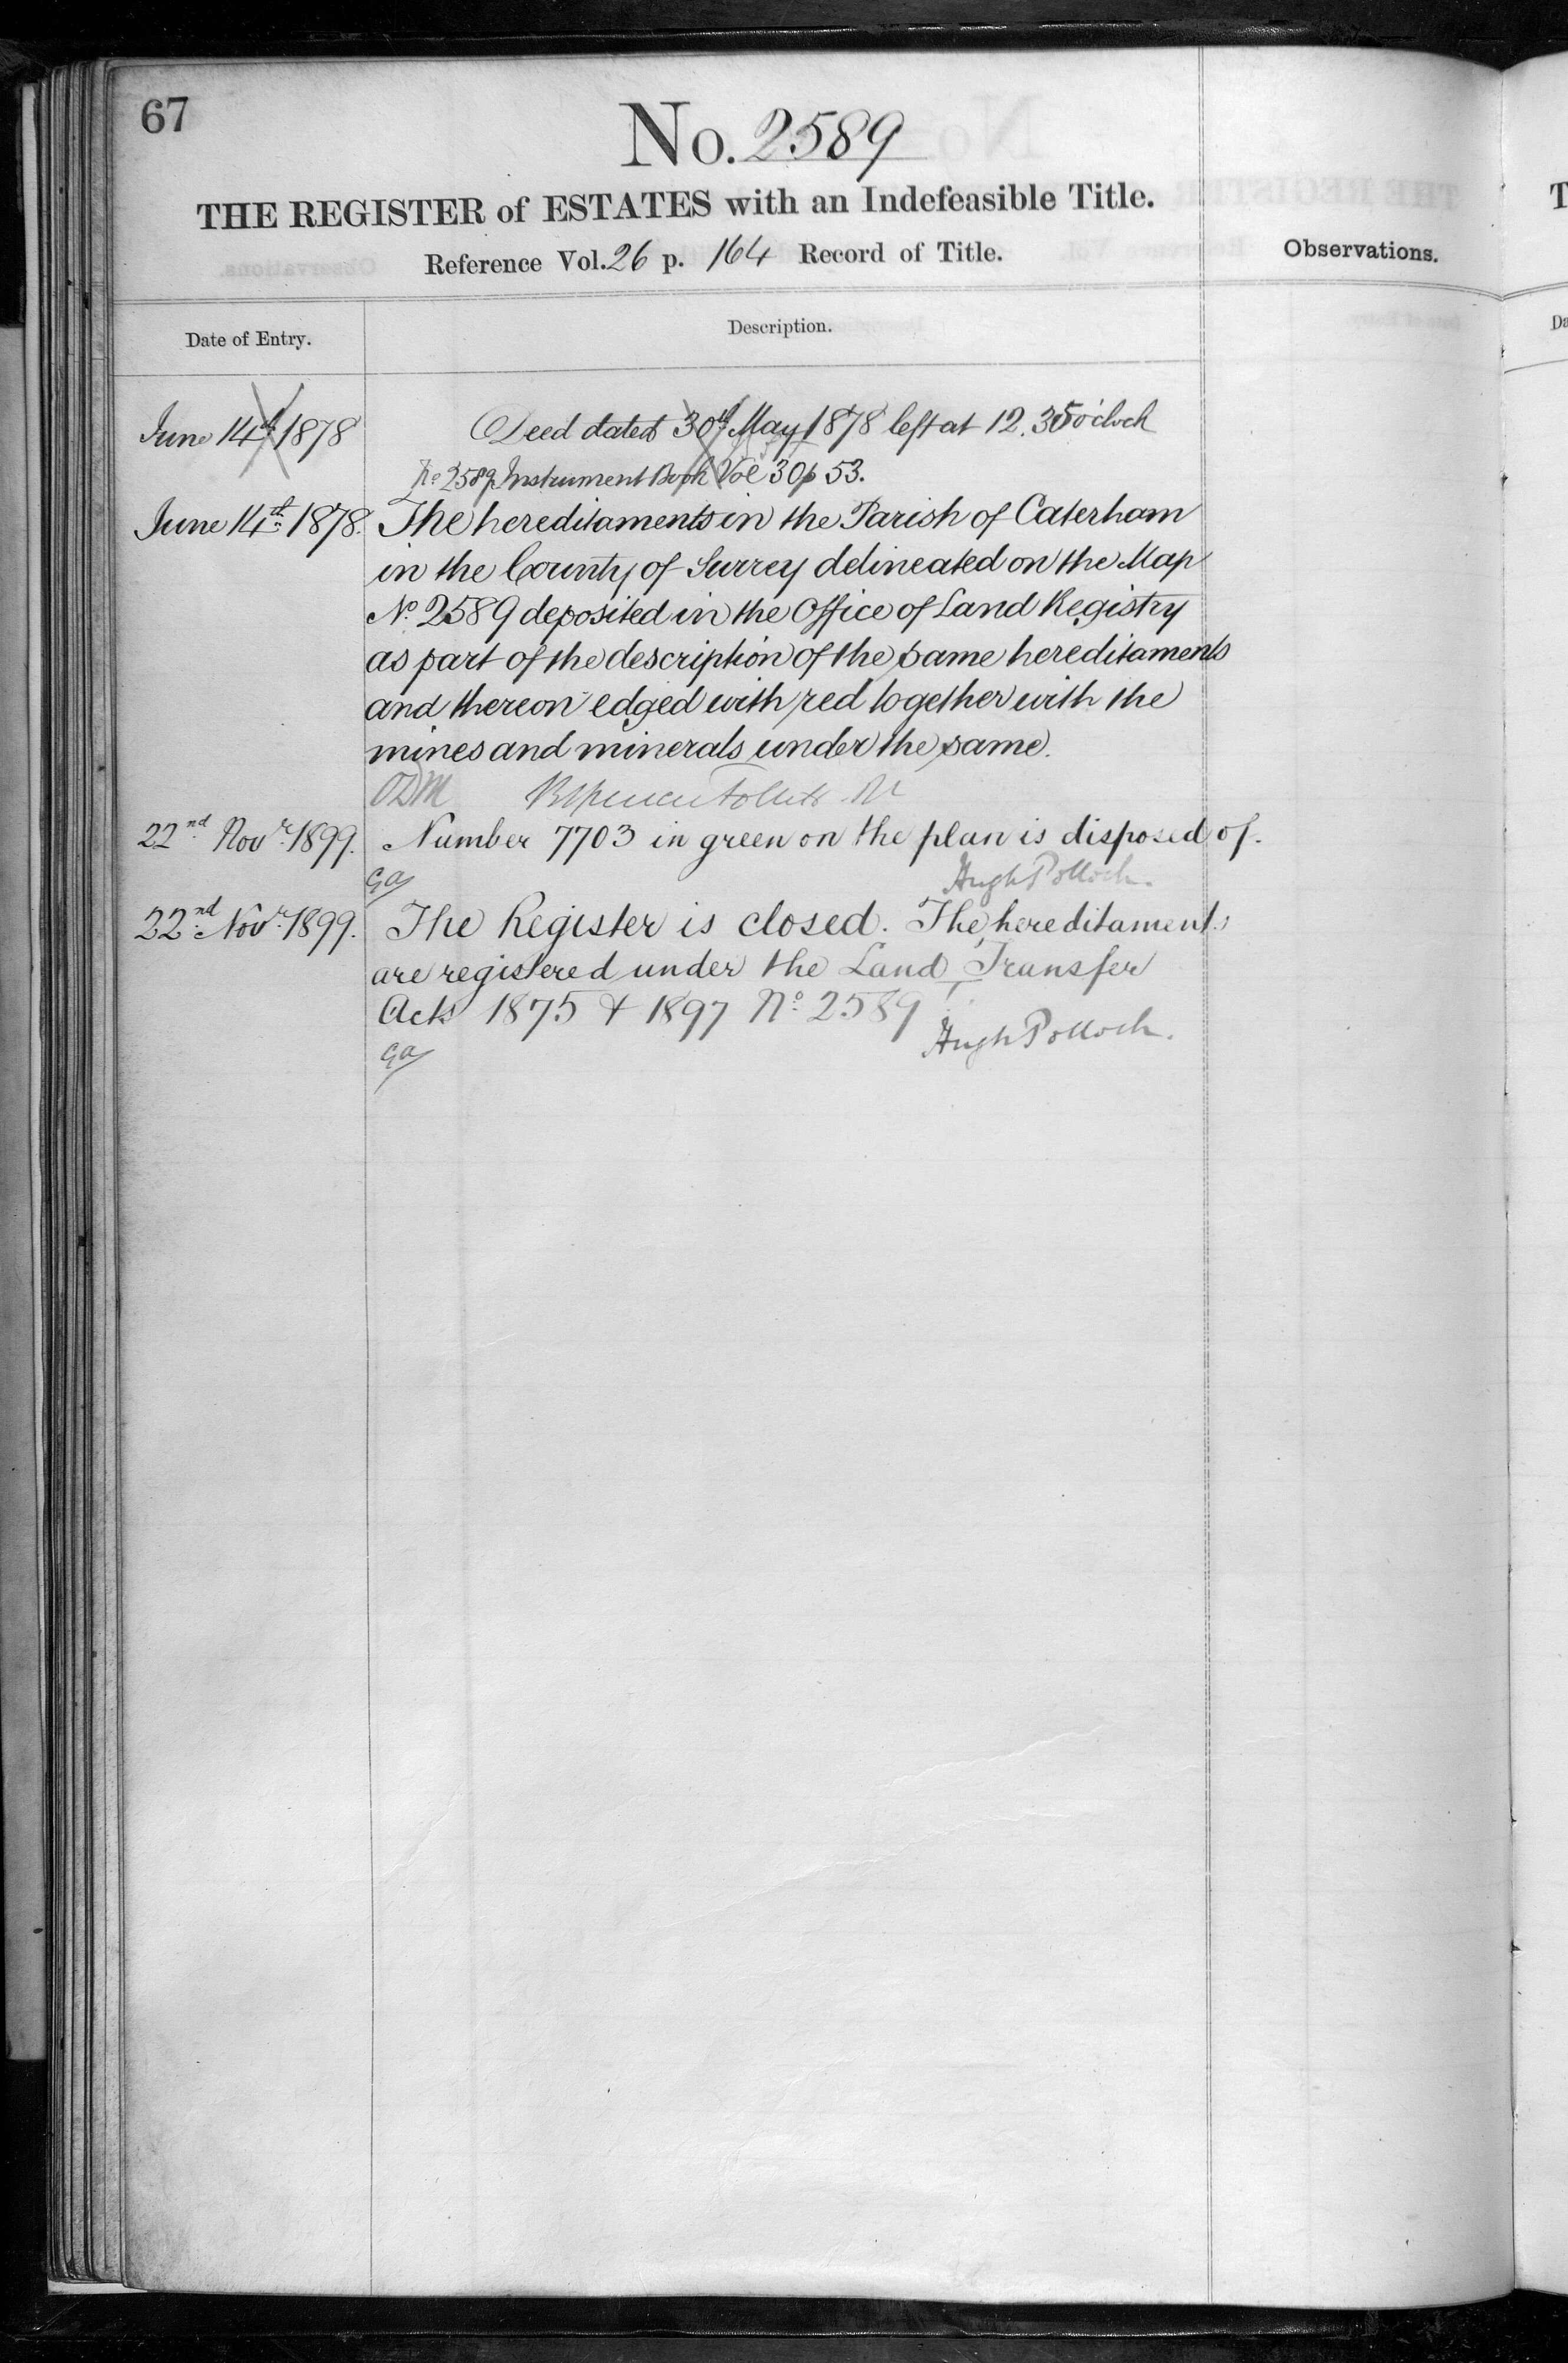 67
No. 2589
THE REGISTER of ESTATES with an Indefeasible Title.
Reference Vol. 26 p. 164 Record of Title.
Observations.
Date of Entry.
Description.
June 14th 1878
Deed dated 30th May 1878 left at 12.35 o'clock
No 2589 Instrument Book Vol 30 p 53.
June 14th 1878.
The hereditaments in the Parish of Caterham
in the County of Surrey delineated on the Map
No. 2589 deposited in the Office of Land Registry
as part of the description of the same hereditaments
and thereon edged with red together with the
mines and minerals under the same.
22nd Novr. 1899.
Number 7703 in green on the plan is disposed of.
Hugh Pollock.
22nd Novr. 1899.
The Register is closed. The hereditaments
are registered under the Land Transfer
Acts 1875 & 1897 No. 2589
Hugh Pollock.